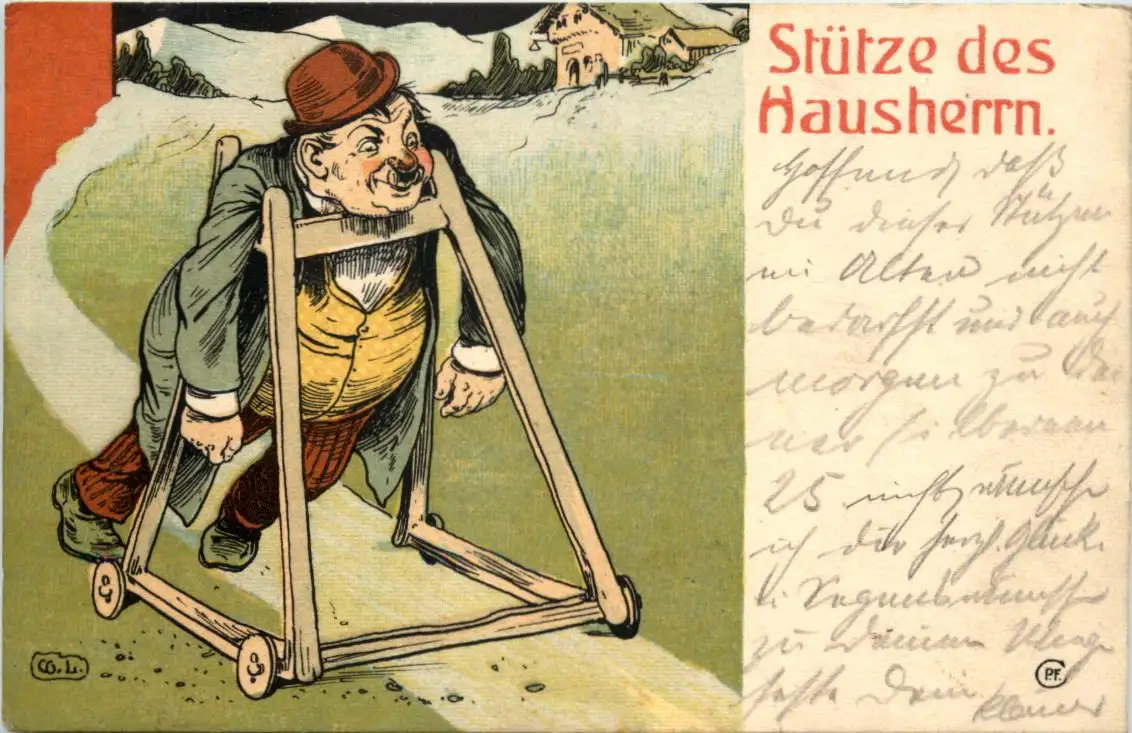 Stütze des
Hausherrn.
Hoffend, daß
Du dieser Stützen
im Alter nicht
bedarfst und auch
morgen zu
25 nicht, wünsche
ich dir herzl. Glück.
Segenswünsche
zu Deinem
Dein
G. L.
P.F.